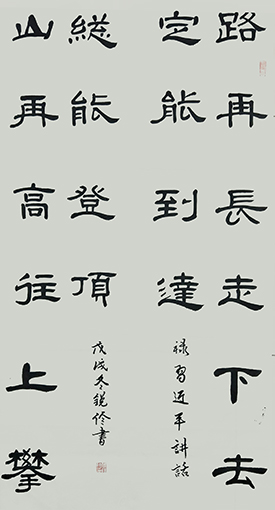 路再長走下去
定能到達
録習近平講話
山再高往上攀
緫能登頂
戊戌冬銳書